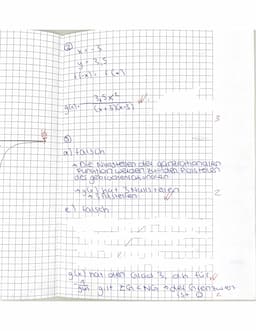 ②
x = -3
y = 3,5
f(-x) = f(x)
g(x) = 3,5x²
(x+3)(x-3)
3
③
a) falsch
→ Die Nullstellen der ganzrationalen
Funktion werden zu den Polstellen
der gebrochenrationalen
→ g(x) hat 3 Nullstellen
2
c) falsch
g(x) hat den Grad 3, d.h. für
gilt ZG < NG → der Grenzwert
ist 0
2